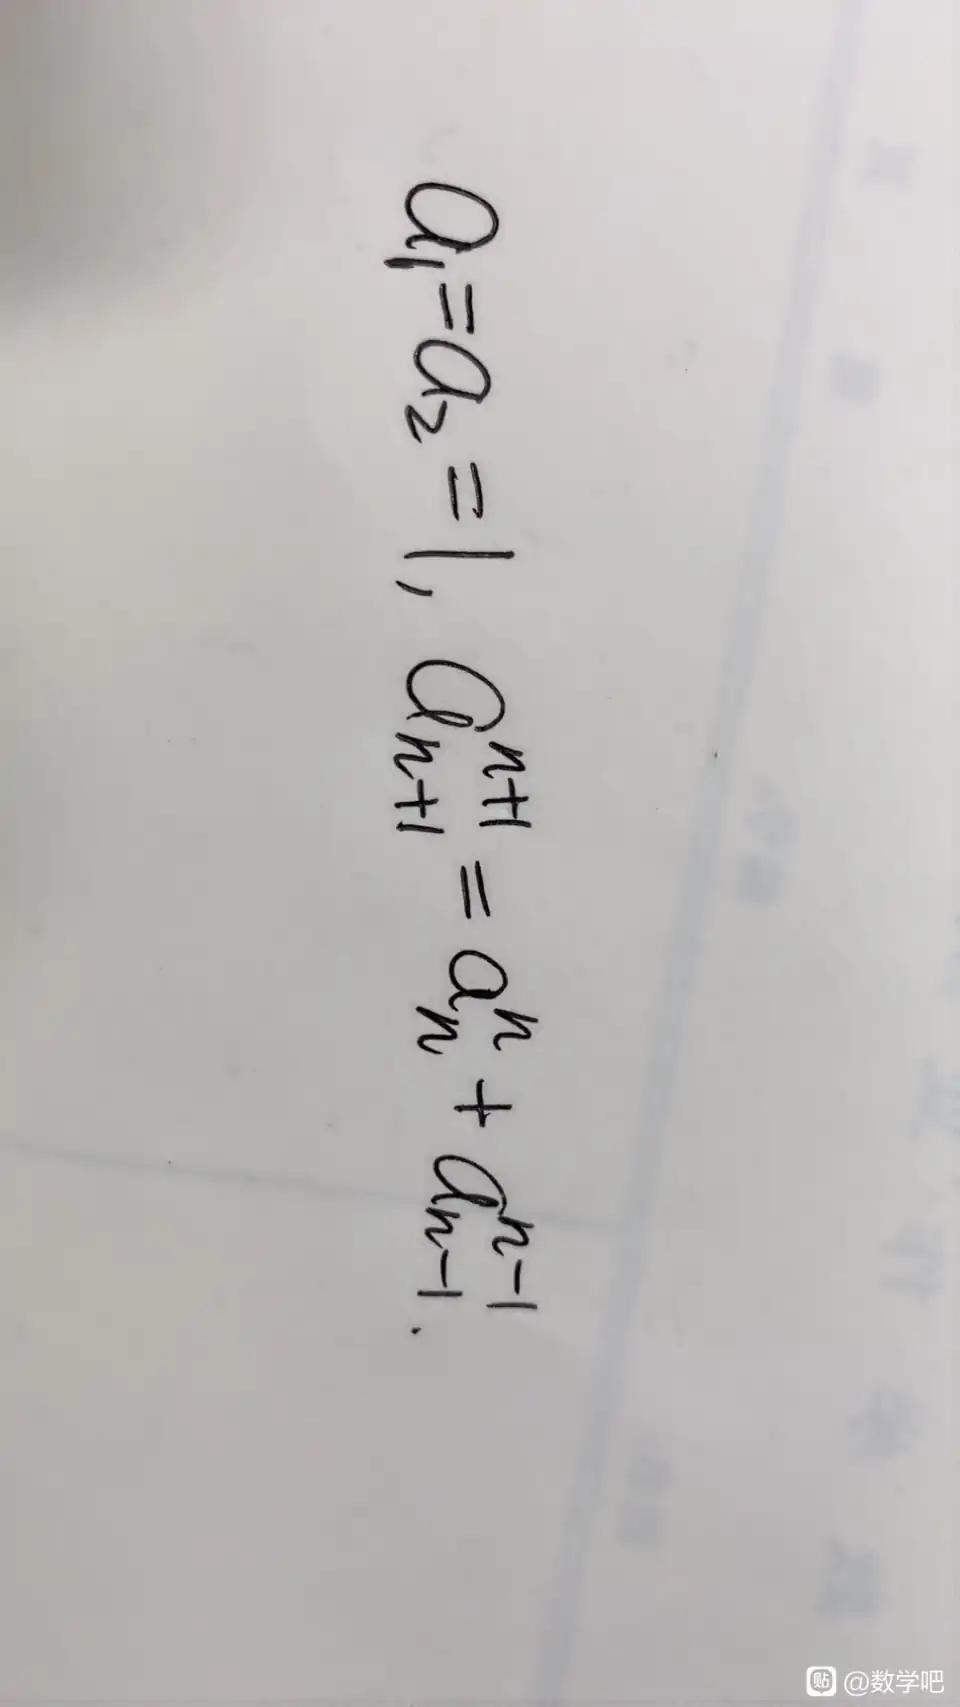 a₁=a₂=1, aₙ₊₁ⁿ⁺¹=aₙⁿ+aₙ₋₁ⁿ⁻¹.
贴 @数学吧